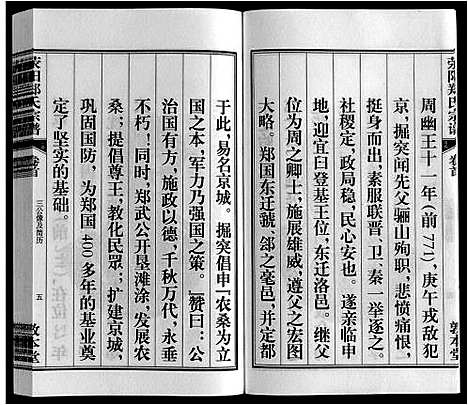 荥阳郑氏宗谱
卷首
周幽王十一年（前771），庚午戎敌犯
京，掘突闻先父骊山殉职，悲愤痛恨，
挺身而出，素服联晋、卫、秦一举逐之。
社稷定，政局稳，民心安也。遂亲临申
地，执宜臼登基王位，东迁洛邑。继父
位为周之卿士，施展雄威，遵父之宏图
大略。郑国东迁虢、郐之亳邑，并定都
敦本堂
于此，易名京城。掘突倡申“农桑为立
国之本，军力乃强国之策。”赞曰：公
治国有方，施政以德，千秋万代，永垂
不朽！同时，郑武公开垦滩涂，发展农
桑；提倡尊王，教化民众；扩建京城，
巩固国防，为郑国400多年的基业奠
定了坚实的基础。
荥阳郑氏宗谱
卷首
三公像及简历
五
敦本堂